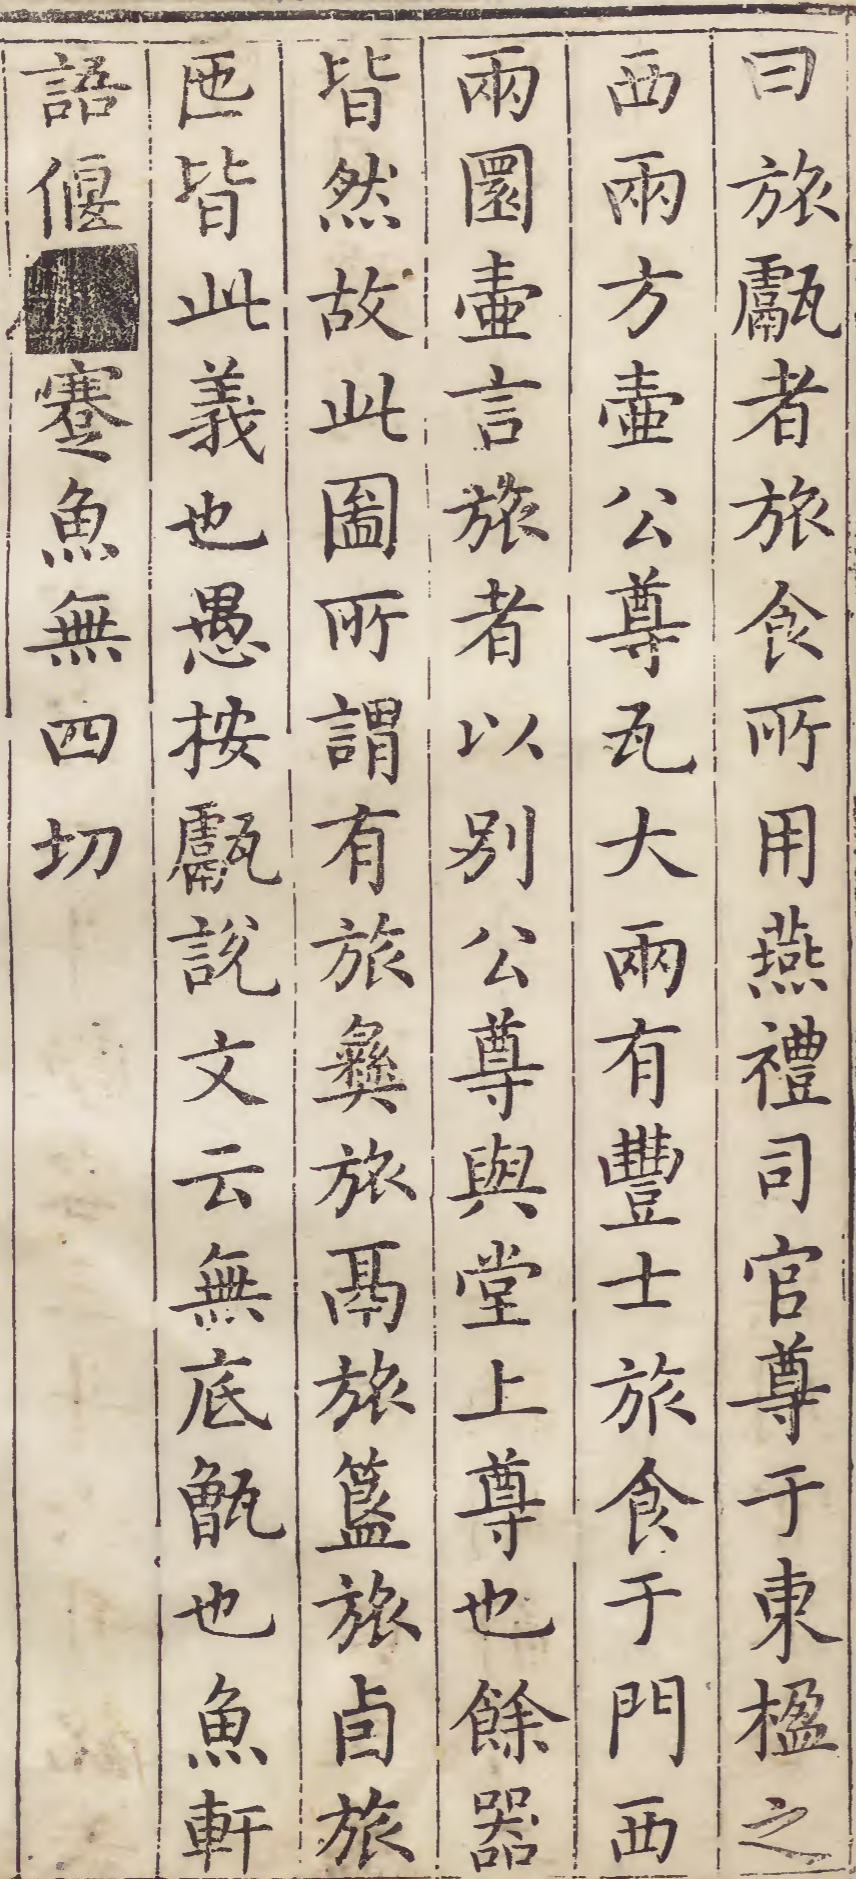 曰旅甗者旅食所用燕禮司官尊于東楹之
西兩方壷公尊瓦大兩有豐士旅食于門西
兩圜壷言旅者以别公尊與堂上尊也餘器
皆然故此圖所謂有旅彝旅鬲旅簋旅卣旅
匜皆此義也愚按甗說文云無底甑也魚軒
語偃蹇魚無四切